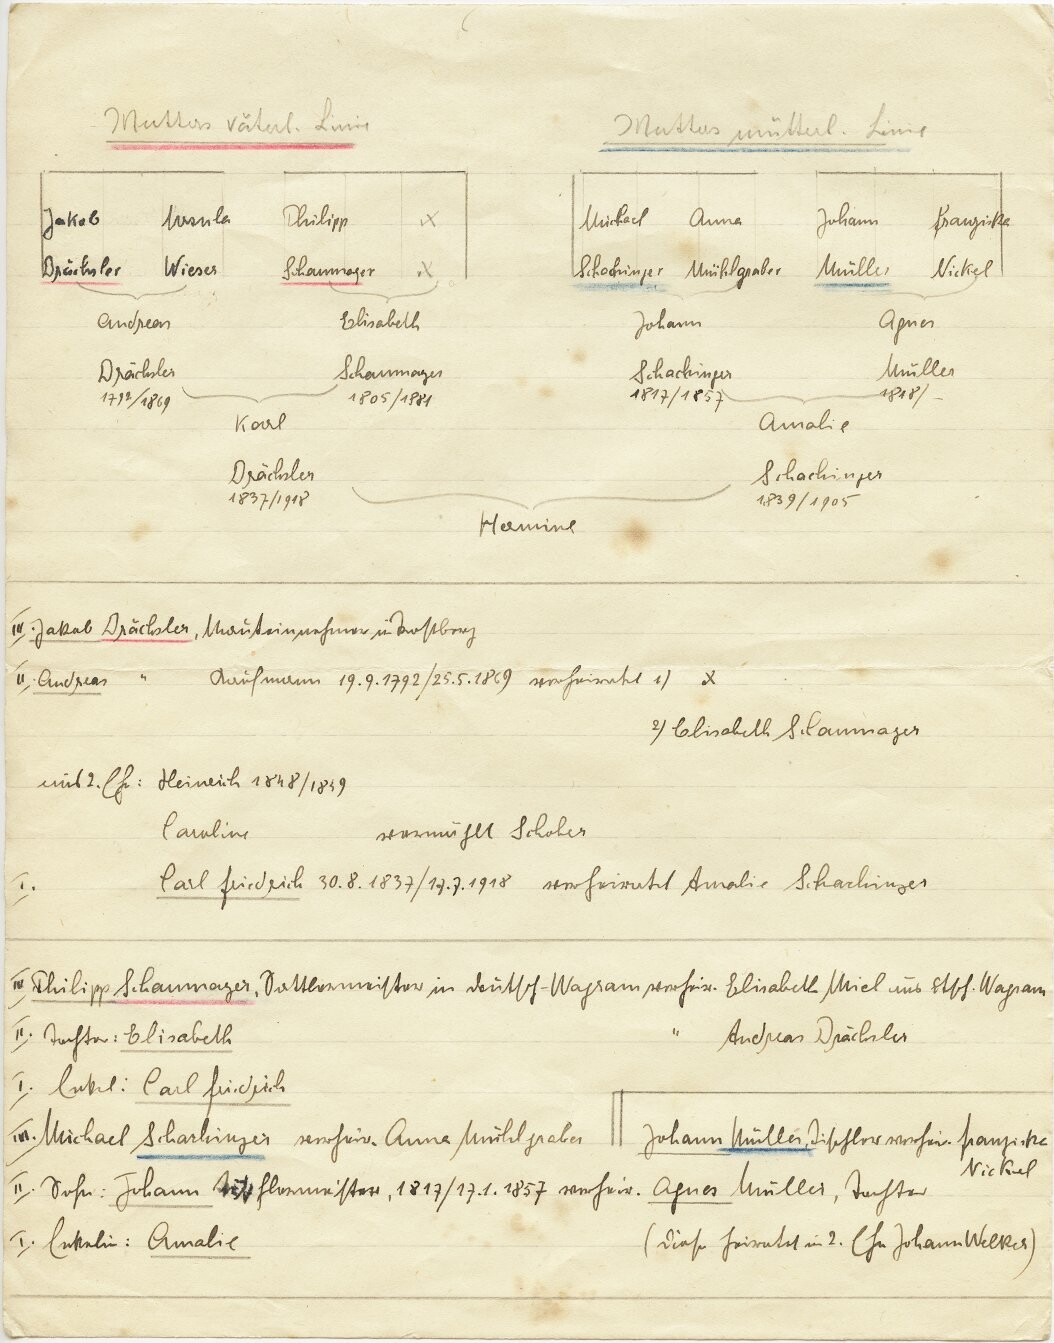 Mutters väterl. Linie Mutters mütterl. Linie
Jakob Ursula Philipp x Michael Anna Johann Franziska
Drächsler Wieser Schaumayer x Schachinger Mühlgraber Müller Nickel
Andreas Elisabeth Johann Agnes
Drächsler Schaumayer Schachinger Müller
1792/1869 1805/1881 1817/1857 1818/-
Karl Amalie
Drächsler Schachinger
1837/1918 1839/1905
Hermine
III. Jakob Drächsler, Mauteinnehmer in
II. Andreas " Kaufmann 19.9.1792/25.5.1869 verheiratet 1) x
2) Elisabeth Schaumayer
aus 2. Ehe: Heinrich 1848/1849
Caroline vermählt Schober
I. Carl Friedrich 30.8.1837/17.7.1918 verheiratet Amalie Schachinger
III. Philipp Schaumayer, Sattlermeister in Deutsch-Wagram verheir. Elisabeth Miel aus Dtsch. Wagram
II. Tochter: Elisabeth " Andreas Drächsler
I. Enkel: Carl Friedrich
III. Michael Schachinger verheir. Anna Mühlgraber Johann Müller, Tischler verheir. Franziska
Nickel
II. Sohn: Johann Tischlermeister, 1817/17.1.1857 verheir. Agnes Müller, Tochter
I. Enkelin: Amalie (diese heiratet in 2. Ehe Johann Welker)